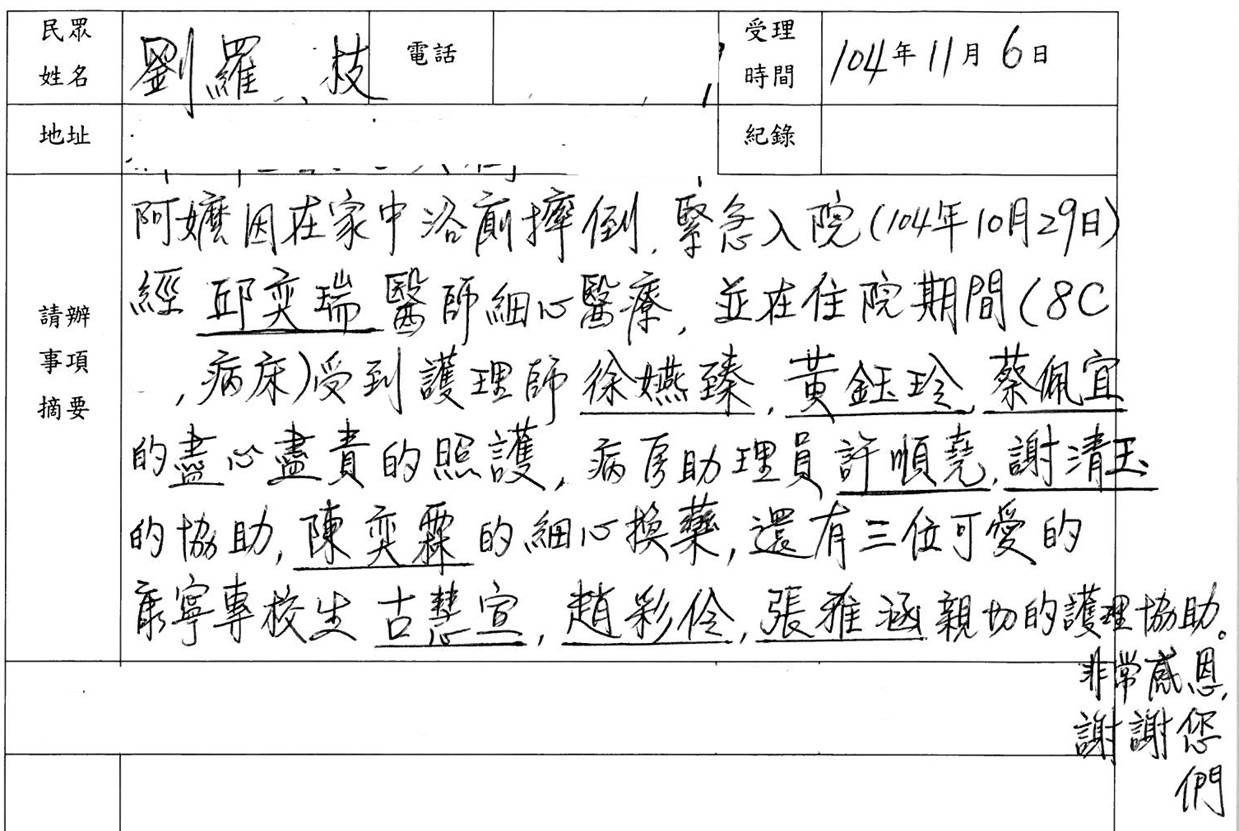 民眾姓名 劉羅 枝 電話 受理時間 104年11月6日
地址 紀錄
請辦事項摘要
阿嬤因在家中浴廁摔倒,緊急入院(104年10月29日)
經邱奕瑞醫師細心醫療,並在住院期間(8C
,病床)受到護理師徐嬿臻,黃鈺玲,蔡佩宜
的盡心盡責的照護,病房助理員許順堯,謝清玉
的協助,陳奕霖的細心換藥,還有三位可愛的
康寧專校生古慧宣,趙彩伶,張雅涵親切的護理協助。
非常感恩,
謝謝您
們